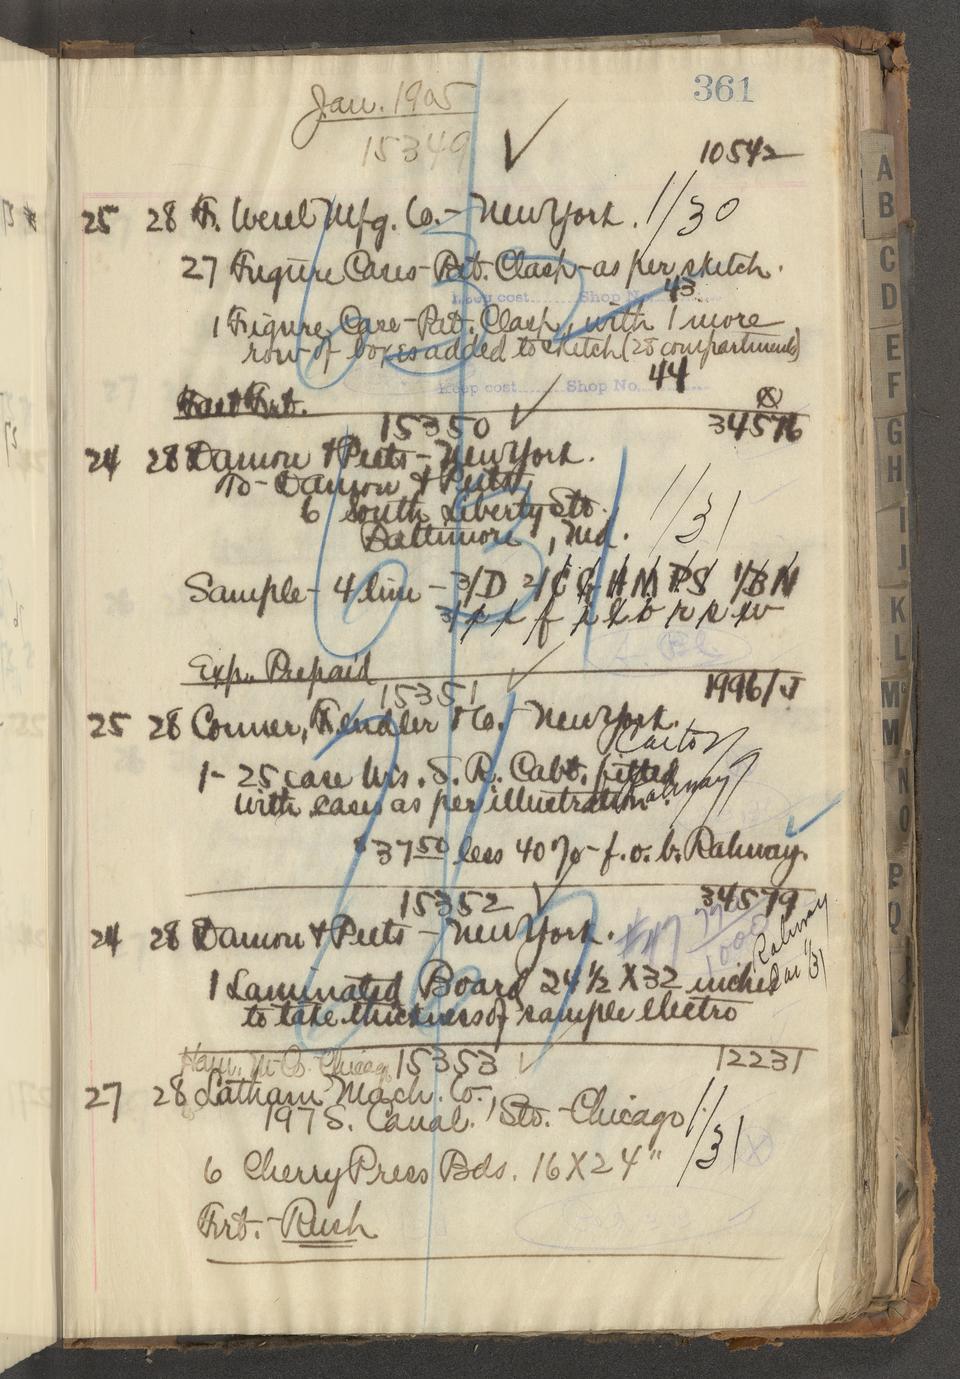 361
Jan. 1905
15349
10542
25 28 F. Wesel Mfg. Co. - New York. 1/30
27 Figure Cases - Pat. Clasp - as per sketch.
Keep cost Shop No. 43
1 Figure Case - Pat. Clasp, with 1 more
row of boxes added to sketch (28 compartments)
Keep cost Shop No. 44
Fast Frt.
15350 34576
24 28 Damon & Peets - New York.
To - Damon & Peets
6 South Liberty St.
Baltimore, Md. 1/31
Sample - 4 line - 3/D 2/C G H M P S 1/B N
Exp. Prepaid
15351 1996/J
25 28 Conner, Fendler & Co. - New York.
1 - 25 case Wis. S. R. Cabt. fitted
with cases as per illustration.
Rahway
$37.50 less 40% - f. o. b. Rahway.
15352 34579
24 28 Damon & Peets - New York.
Rahway
1 Laminated Board 24 1/2 X 32 inches
to take thickness of sample electro
Ham. M. Co. Chicago 15353 12231
27 28 Latham Mach. Co.,
197 S. Canal. St. - Chicago 1/31
6 Cherry Press Bds. 16 X 24"
Frt. - Rush
A
B
C
D
E
F
G
H
I
J
K
L
Mc
M
N
O
P
Q